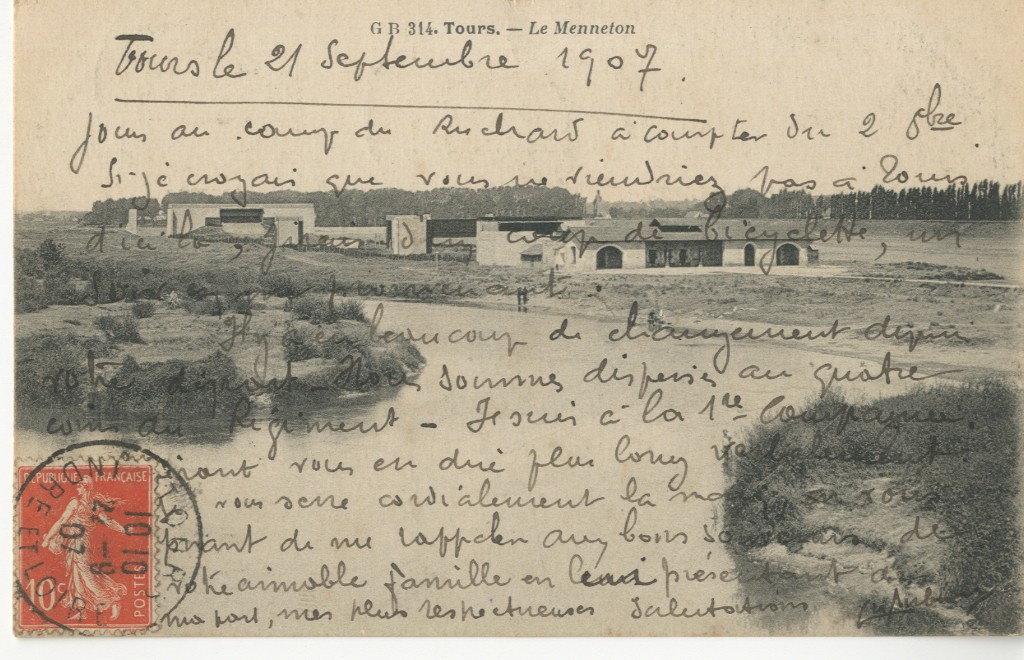 G B 314. Tours. — Le Menneton
Tours le 21 Septembre 1907.
Jours au camp du Ruchard à compter du 2 8bre
Si je croyais que vous ne viendriez pas à Tours
d'ici là, j'irais d'un coup de bicyclette, un
en me promenant.
Il y a eu beaucoup de changement depuis
votre départ - Nous sommes dispersés au quatre
coins du Régiment - Je suis à la 1re Compagnie.
vous en dire plus long verbalement
vous serre cordialement la main en vous
priant de me rappeler aux bons souvenirs de
votre aimable famille en leur présentant de
ma part, mes plus respectueuses salutations
REPUBLIQUE FRANÇAISE
10c
POSTES
INDRE ET LOIRE
07